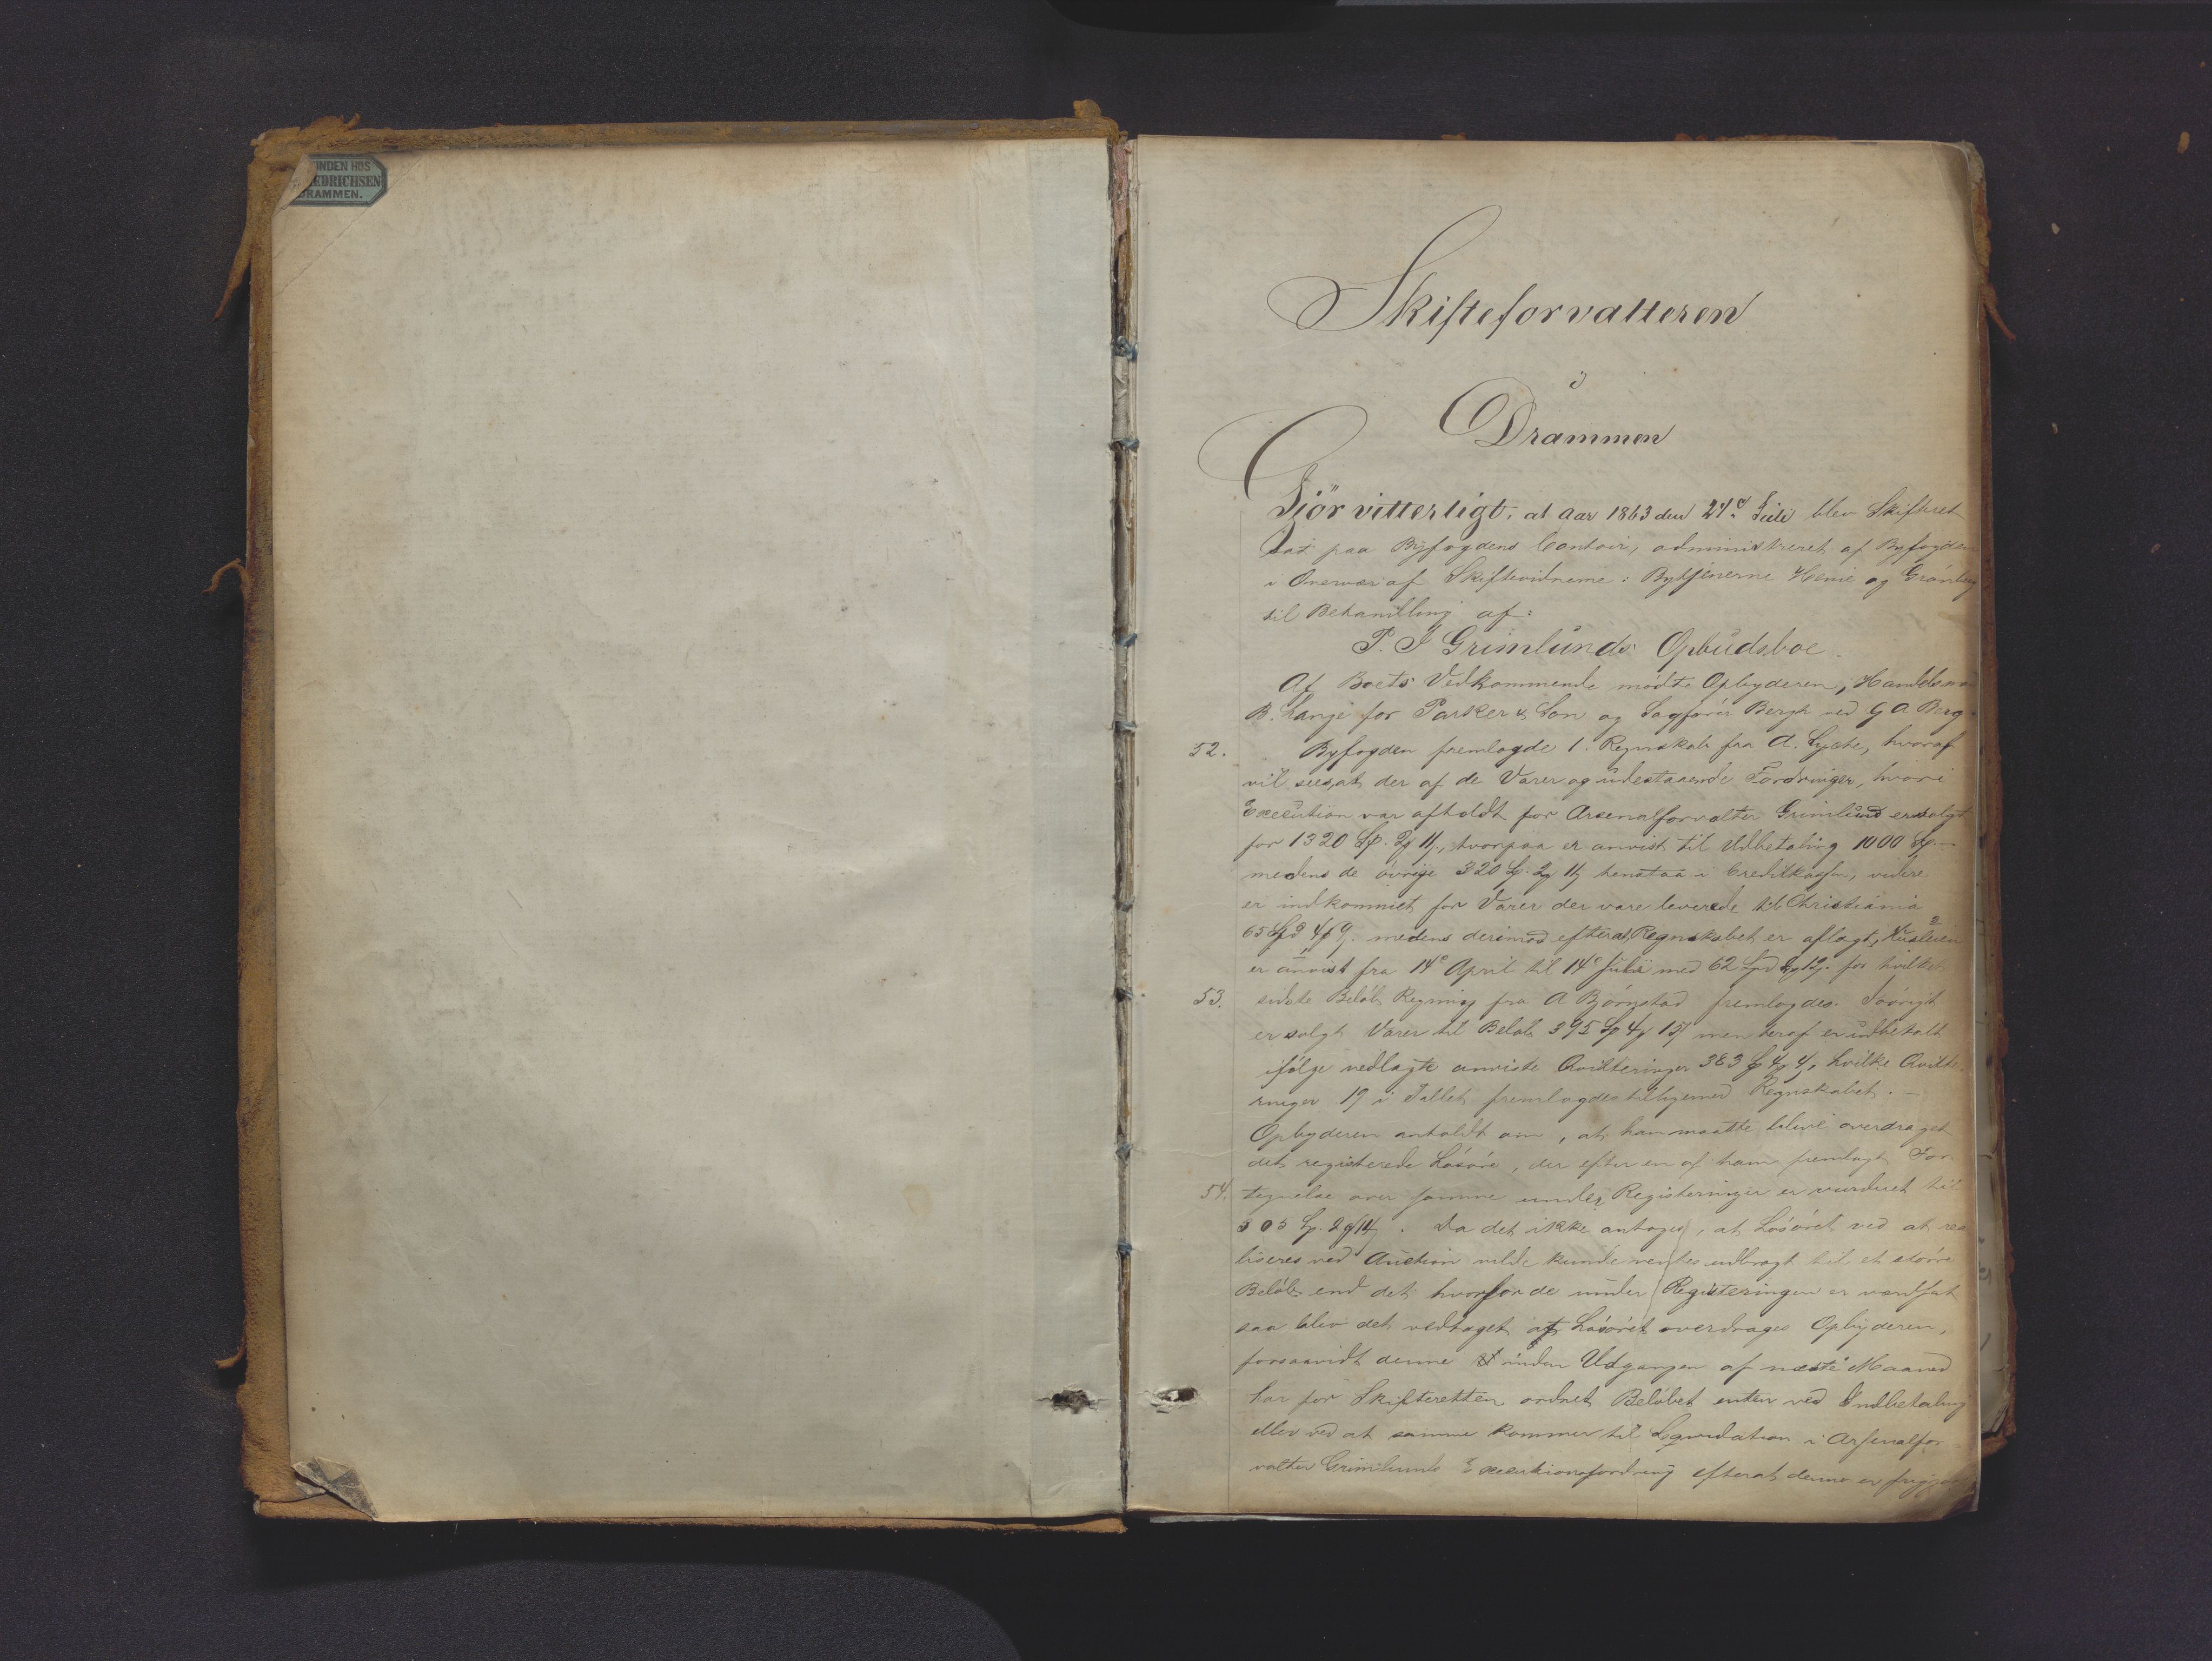 INDEN HOS
EDRICHSEN
DRAMMEN.
Skifteforvalteren
i
Drammen
Gjör vitterligt, at Aar 1863 den 27d Juli blev Skifteret
sat paa Byfogdens Contoir, administreret af Byfogden
i Overvær af Skiftevidnerne: Bytjenerne Henie og Grönberg
til Behandling af:
P. J Grimlunds Opbudsboe.
Af Boets Vedkommende mödte Opbyderen, Handelsm
B. Lange for Parker & Son og Sagförer Bergh ved G A Berg.
52. Byfogden fremlagde 1. Regnskab fra A. Lycke, hvoraf
vil sees, at der af de Varer og udestaaende Fordringer, hvori
Execution var afholdt for Arsenalforvalter Grimlund er solgt
for 1320 Sp. 2 11, hvorpaa er anvist til Udbetaling 1000 Sp.
medens de övrige 320 Sp. 2 11 henstaa i Creditkassen, videre
er indkommet for Varer der vare leverede til Christiania
65 Spd 4 9. medens derimod efterat Regnskabet er aflagt, Husleien
er anvist fra 14de April til 14de Juli med 62 Spd 12. for hvilket
53. sidste Belöb Regning fra A Björnstad fremlagdes. Iövrigt
er solgt Varer til Belöb 395 Sp 4 15 men deraf er udbetalt
ifölge vedlagte anviste Qvitteringer 383 Sp 4 4, hvilke Qvitte-
ringer 19 i Tallet fremlagdes tilligemed Regnskabet.
Opbyderen anholdt om, at han maatte blive overdraget
det registerede Lösöre, der efter en af ham fremlagt For-
54. tegnelse over samme under Registeringer er vurderet til
505 Sp. 2 14. Da det ikke antages, at Lösöret ved at rea
liseres ved Auction vilde kunde ventes udbragt til et större
Belöb end det hvorfor de under Registeringen er værdsat
saa blev det vedtaget at Lösöret overdrages Opbyderen,
forsaavidt denne inden Udgangen af næste Maaned
har for Skifteretten ordnet Belöbet enten ved Indbetaling
eller ved at samme kommer til Liqvidation i Arsenalfor
valter Grimlunds Executionsfordring efterat denne er